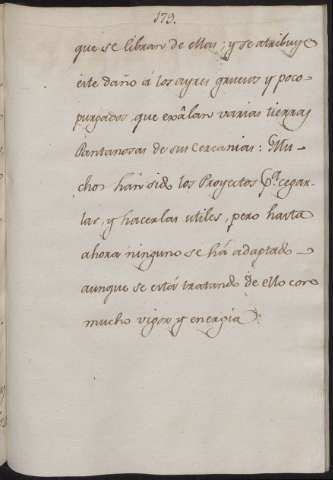 179.
que se libran de ellas; y se atribuye
este daño á los ayres gruesos y poco
purgados, que exâlan varias tierras
Pantanosas de sus Cercanias: Mu-
chos han sido los Proyectos pª. cegar-
las, y hacerlas utiles, pero hasta
ahora ninguno se há adaptado
aunque se están tratando de ello con
mucho vigor y energia.